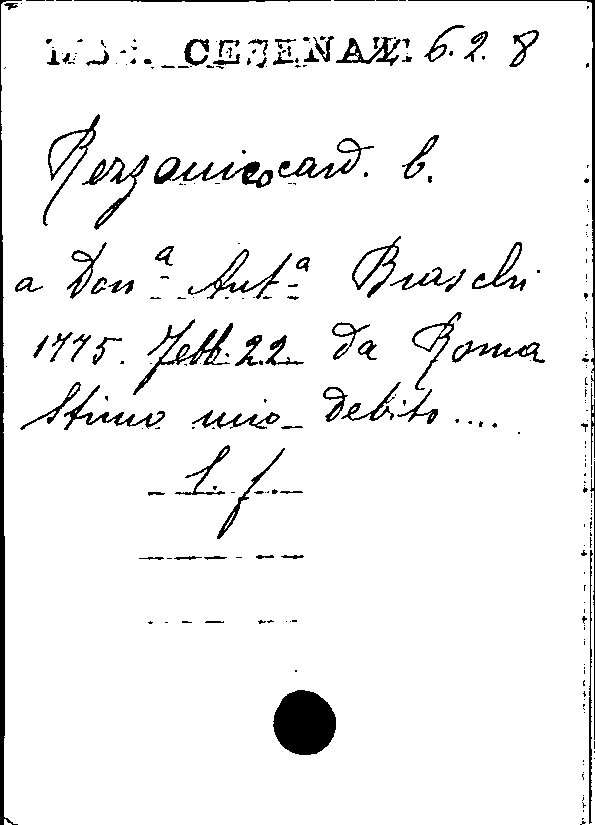 MSS. CESENATI. 6.2.8
Rezzonico card. C.
a Don.ª Ant.ª Braschi
1775. Febb. 22. da Roma
Stimo mio debito....
l. f.